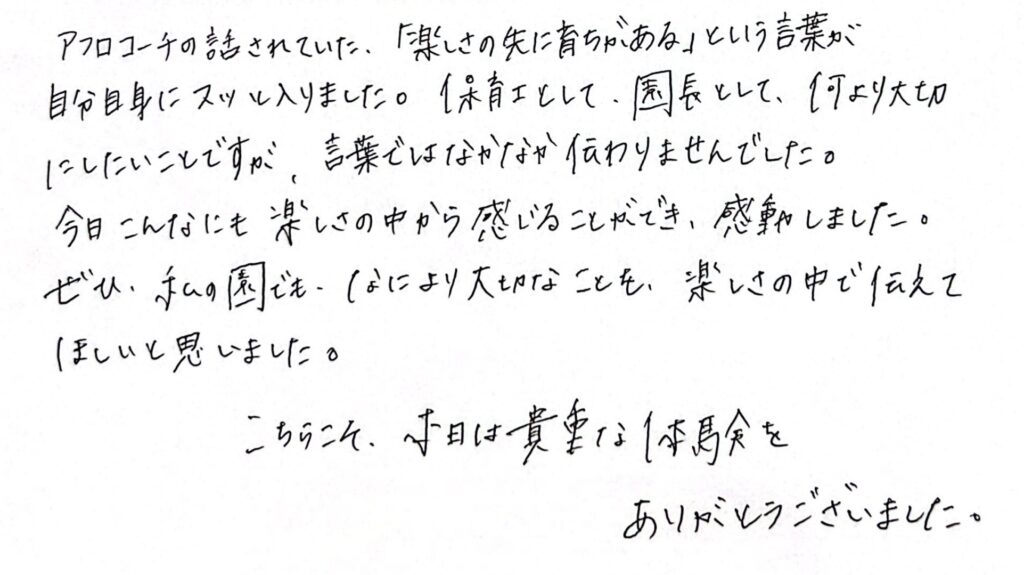 アフロコーチの話されていた、「楽しさの先に育ちがある」という言葉が
自分自身にスッと入りました。保育士として、園長として、何より大切
にしたいことですが、言葉ではなかなか伝わりませんでした。
今日こんなにも楽しさの中から感じることができ、感動しました。
ぜひ、私の園でも、なにより大切なことを、楽しさの中で伝えて
ほしいと思いました。
こちらこそ、本日は貴重な体験を
ありがとうございました。